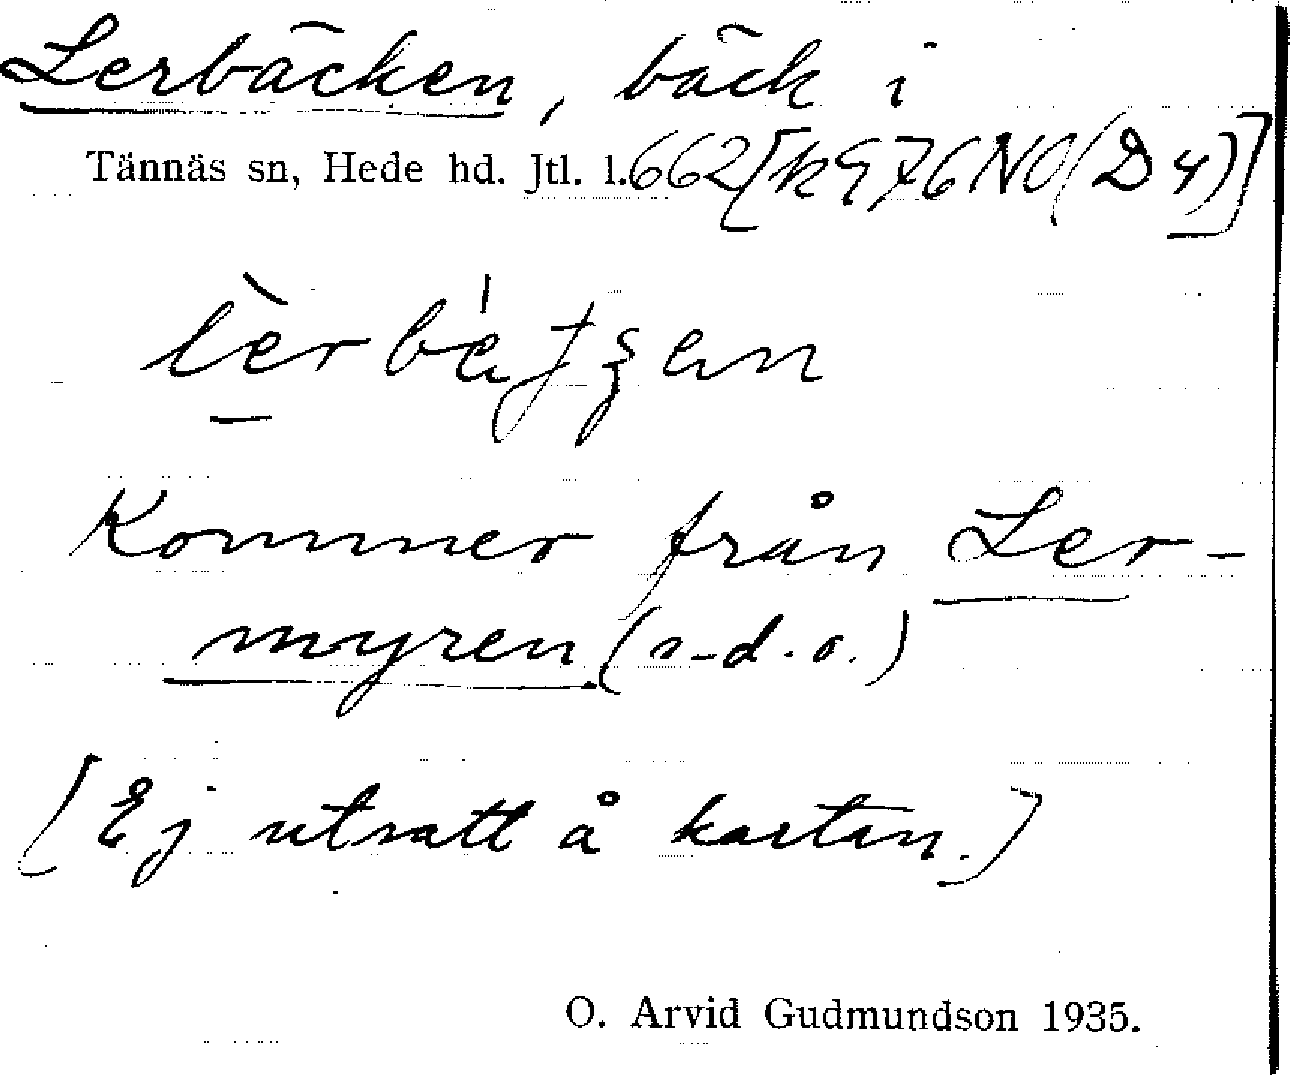 Lerbäcken, bäck i
Tännäs sn, Hede hd. Jtl. l. 662 [k 976 NO (D 4)]
Kommer från Ler-
myren (s.d.o.)
[Ej utsatt å kartan.]
O. Arvid Gudmundson 1935.